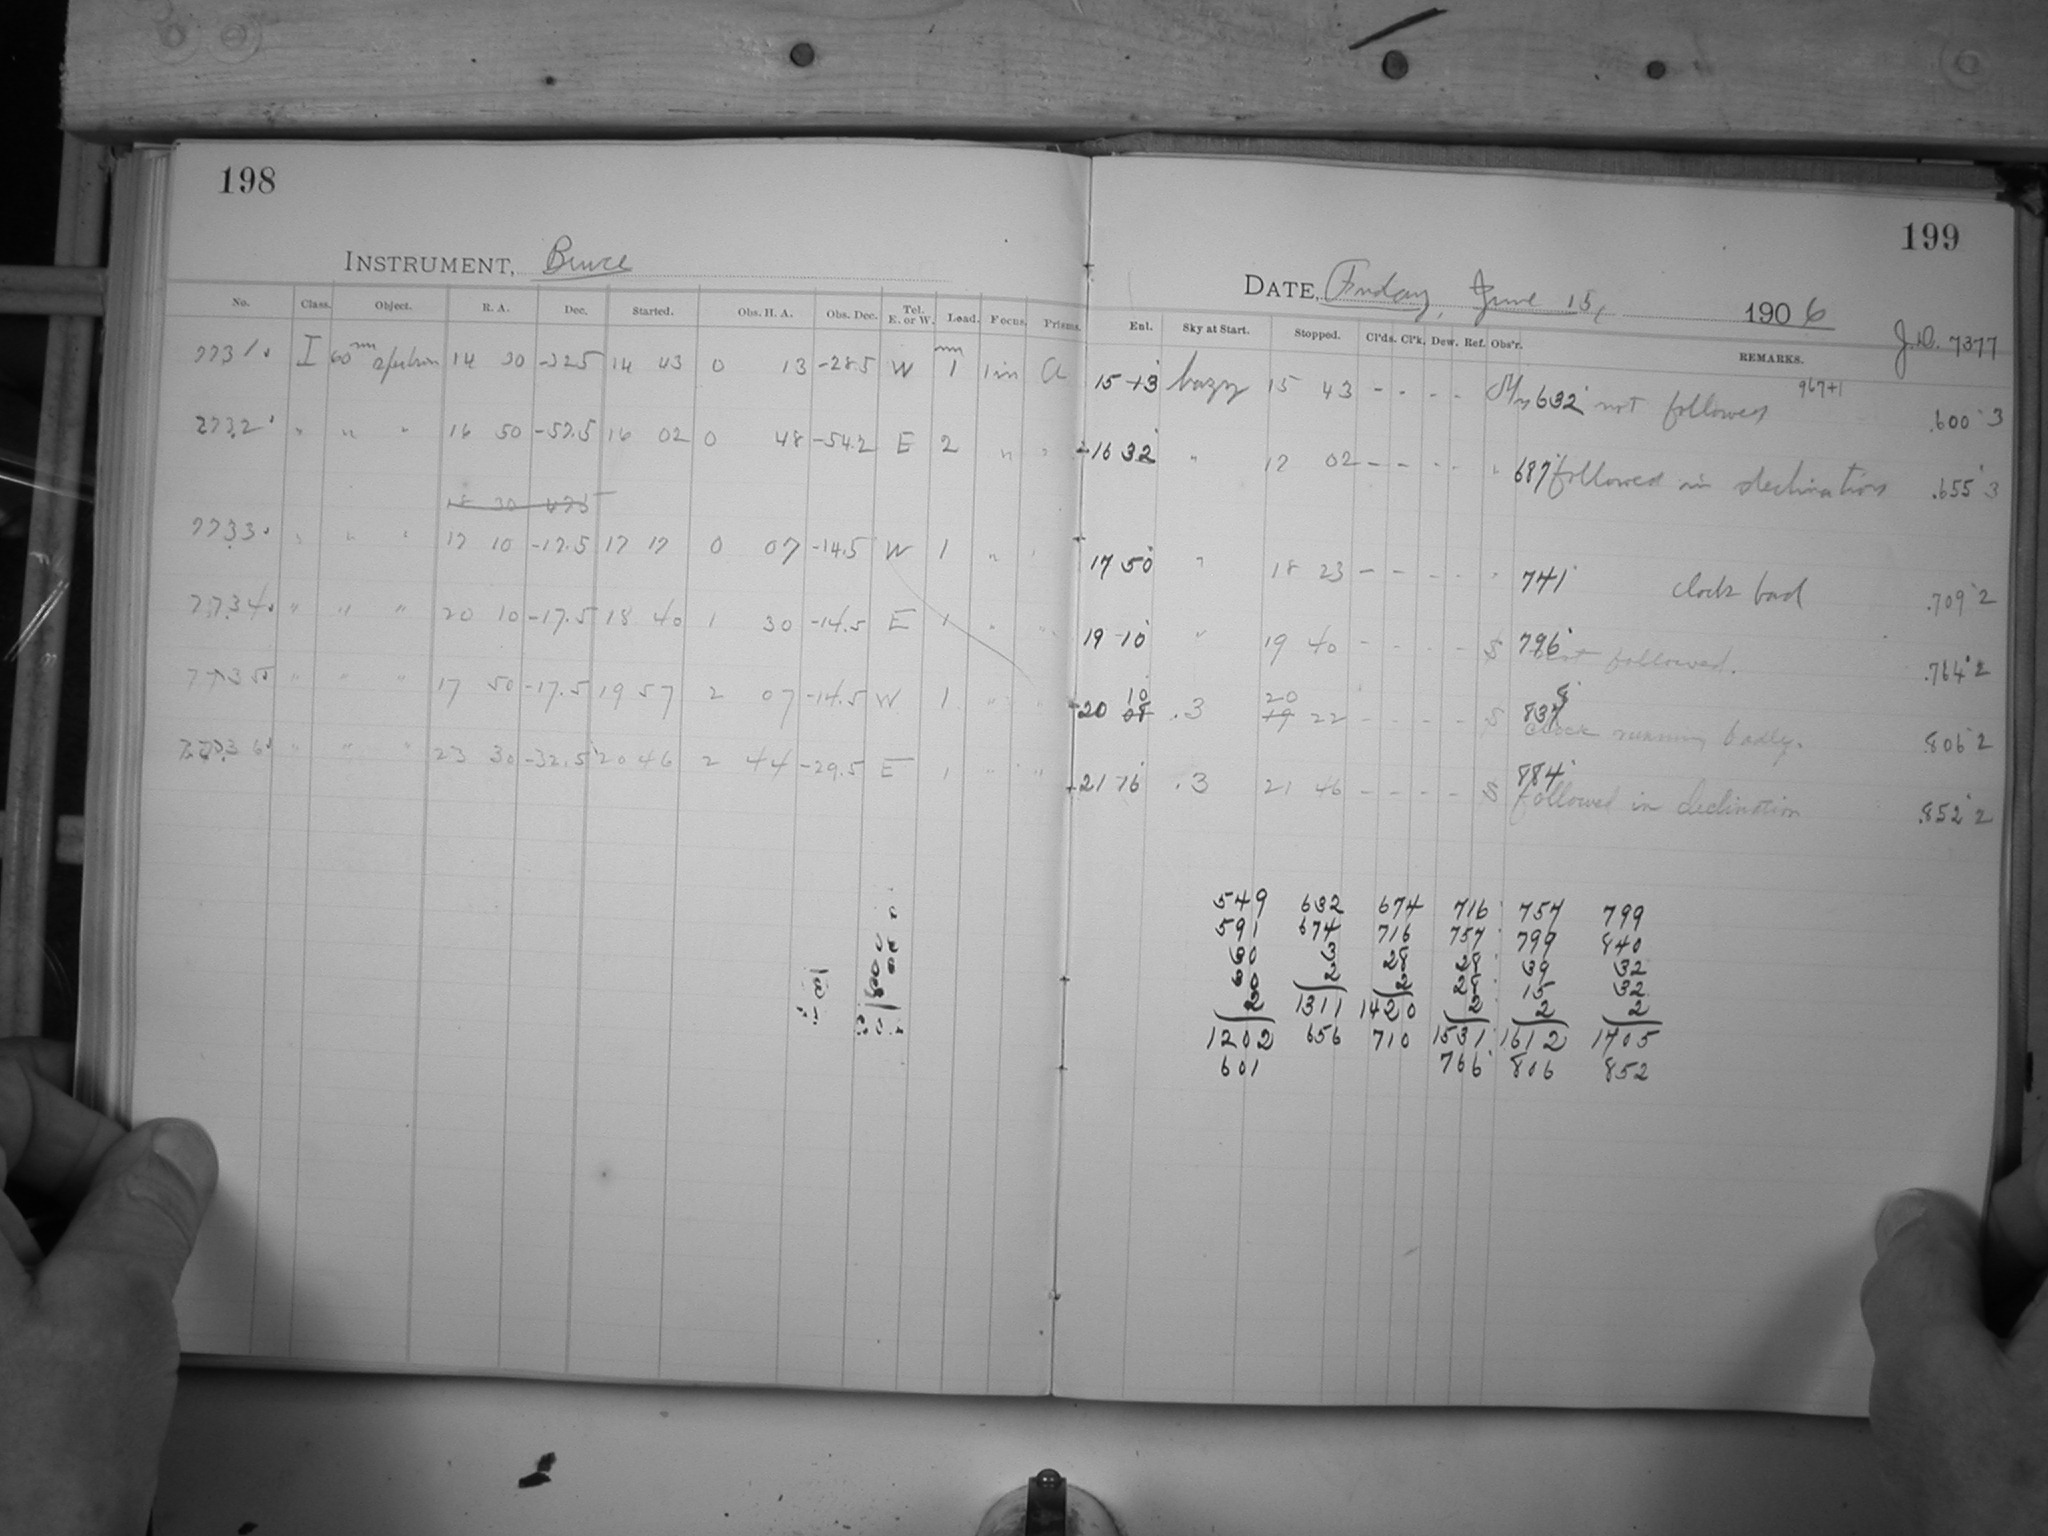 198
INSTRUMENT, Bruce
No. Class. Object. R. A. Dec. Started. Obs. H. A. Obs. Dec. Tel. E. or W. Load. Focus. Prisms.
7731 I 60m spectrum 14 30 -32.5 14 43 0 13 -28.5 W 1 1 in a
7732 " " " 16 50 -57.5 16 02 0 48 -54.2 E 2 " "
18 30 -47.5
7733 " " " 17 10 -17.5 17 17 0 07 -14.5 W 1 " "
7734 " " " 20 10 -17.5 18 40 1 30 -14.5 E 1 " "
7735 " " " 17 50 -17.5 19 57 2 07 -14.5 W 1 " "
7736 " " " 23 30 -32.5 20 46 2 44 -29.5 E 1 " "
199
DATE, Friday, June 15, 1906
J.D. 7377
Ext. Sky at Start. Stopped. Cl'ds. Cl'k. Dew. Ref. Obs'r. REMARKS.
967+1
15 13 hazy 15 43 - - - - 632 not followed .600 3
16 32 " 17 02 - - - - " 687 followed in declination .655 3
17 50 " 18 23 - - - - " 741 clock bad .709 2
19 10 " 19 40 - - - - S 796 not followed. .764 2
10 20 8
20 08 .3 19 22 - - - - S 837 clock running badly. .806 2
21 16 .3 21 46 - - - - S 884 followed in declination .852 2
549 632 674 716 757 799
591 674 716 757 799 840
30 3 28 28 39 32
30 2 2 28 15 32
2 1311 1420 2 2 2
1202 656 710 1531 1612 1705
601 766 806 852